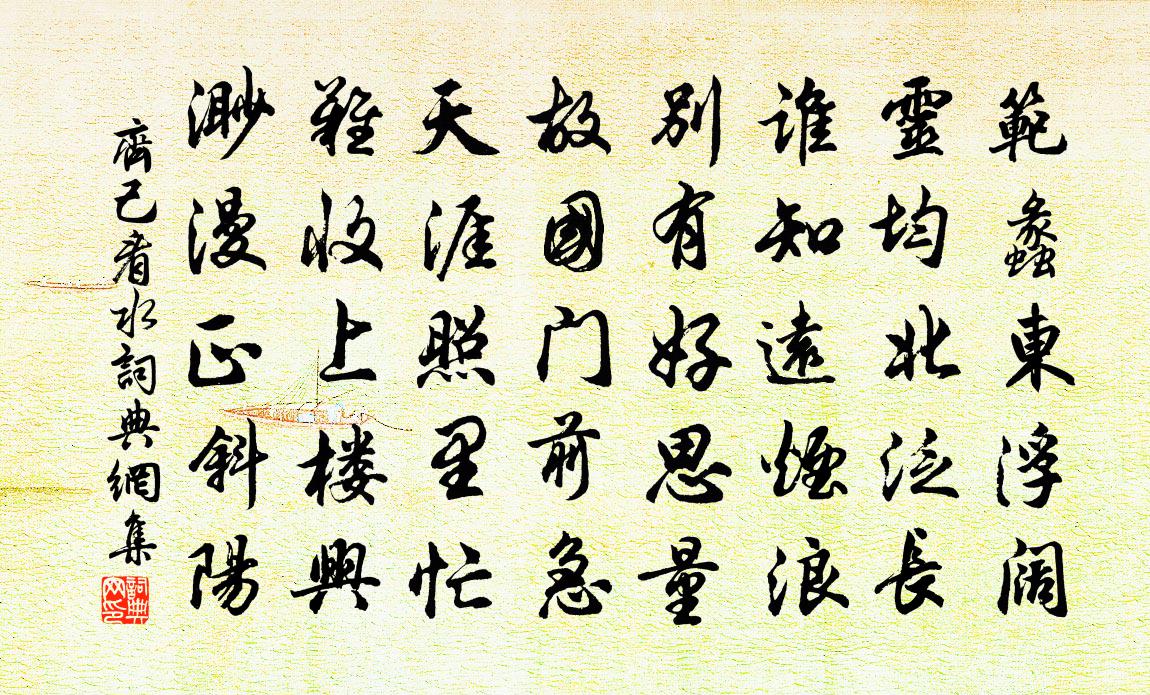 範蠡東浮闊
靈均北泛長
誰知遠煙浪
別有好思量
故國门前急
天涯照里忙
難收上楼興
渺漫正斜陽
齊己看水詞典網集
詞典网印